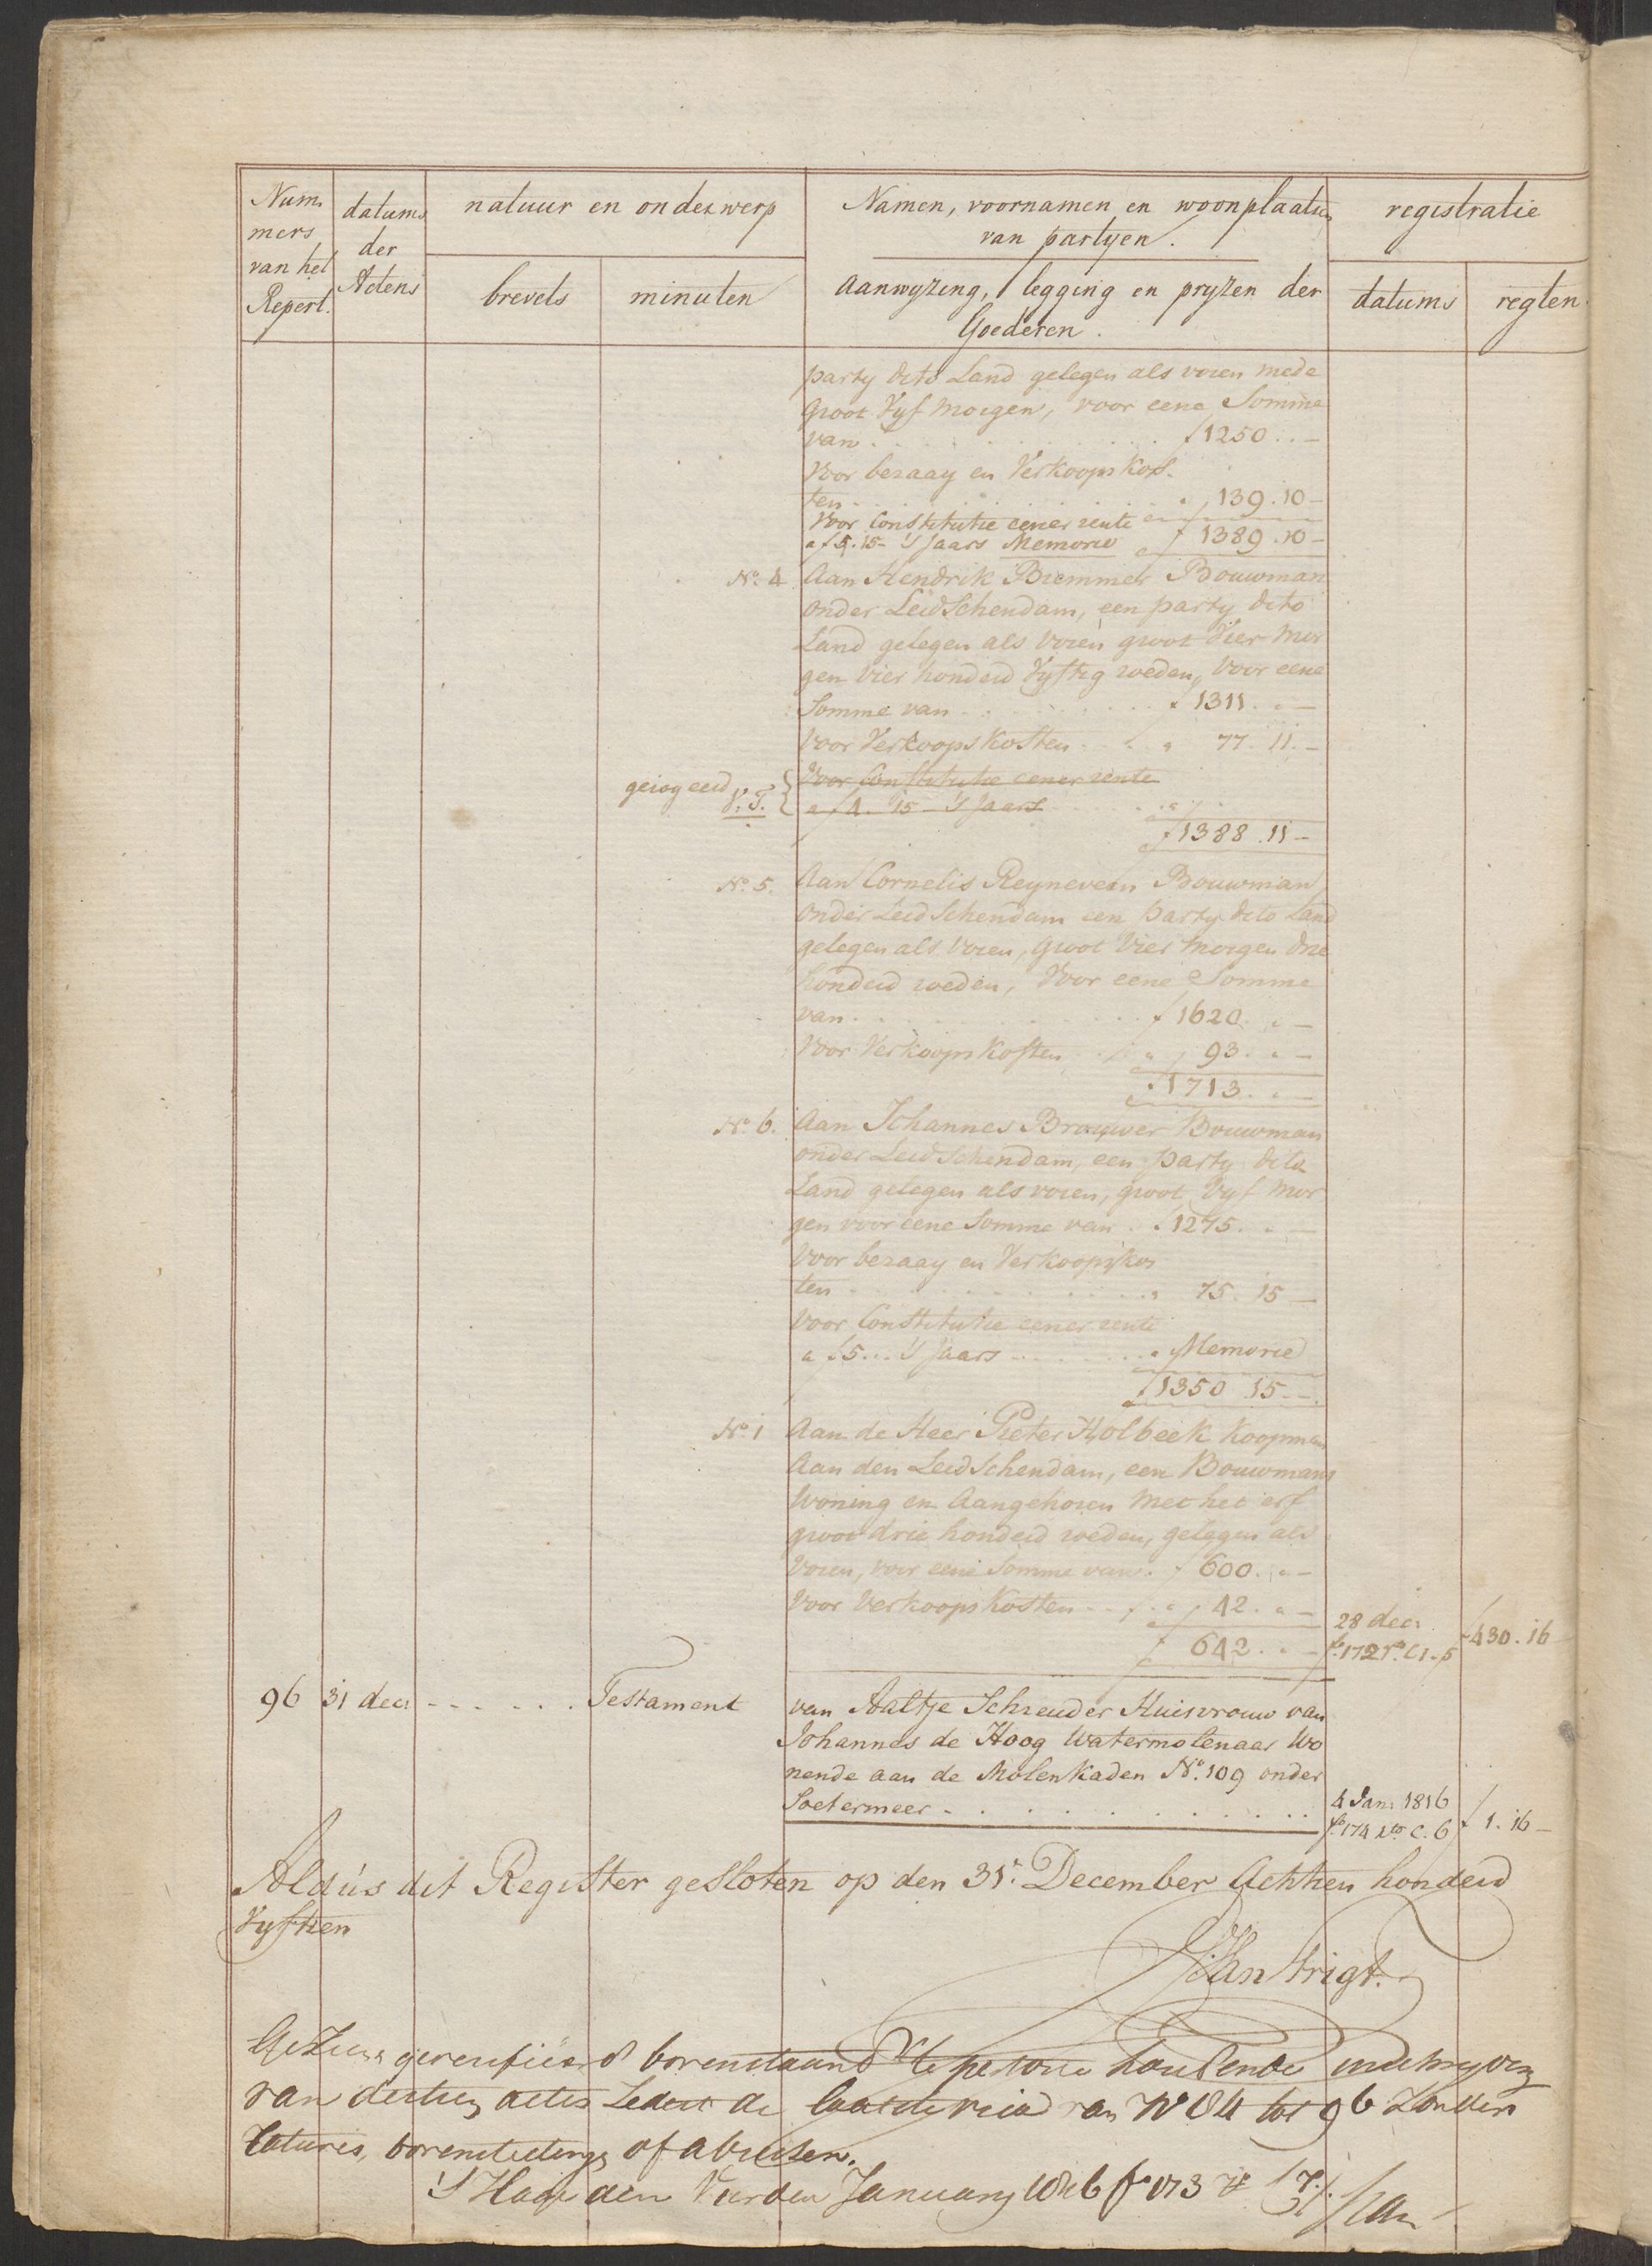 Num
mers
van het
Repert.
datums
der
Actens
natuur en onderwerp
brevets
minuten
Namen, voornamen en woonplaatsen
van partyen.
Aanwyzing, legging en pryzen der
Goederen.
registratie
datums
regten
party dito Land gelegen als voren mede
groot Vyf morgen, voor eene Somme
van . . . . . . . . ƒ 1250 . . —
Voor bezaay en Verkoops Kos-
ten . . . . . . . . " 139 . 10 —
Voor Constitutie eener rente
a ƒ 5. 15 - 'S Jaars Memorie ƒ 1389 . 10 —
No. 4 Aan Hendrik Bremmer Bouwman
onder LeidSchendam, een party dito
Land gelegen als voren groot Vier Mor
gen Vier honderd Vyftig roeden, Voor eene
Somme van . . . . . ƒ 1311 . " —
Voor Verkoops Kosten . . . " 77 . 11 . —
geroyeerd v. T. Voor Constitutie eener rente
a ƒ 4. 15 — 'S Jaars
ƒ 1388 . 11 —
No. 5. Aan Cornelis Reyneveen Bouwman
onder LeidSchendam een party dito Land
gelegen als voren, groot Vier Morgen drie
honderd roeden, Voor eene Somme
van . . . . . . . ƒ 1620 . " —
Voor Verkoops Kosten . . " 93 . " —
ƒ 1713 . " —
No. 6. Aan Johannes Brouwer Bouwman
onder LeidSchendam, een party dito
Land gelegen als voren, groot Vyf Mor
gen voor eene Somme van . ƒ 1275 . " —
Voor bezaay en Verkoops Kos
ten . . . . . . . . " 75 . 15 —
Voor Constitutie eener rente
a ƒ 5 . . . 'S Jaars . . . . . " Memorie
ƒ 1350 . 15 —
No. 1 Aan de Heer Pieter Holbeek Koopman
Aan den LeidSchendam, een Bouwmans
Woning en Aangehoren Met het erf
groot drie honderd roeden, gelegen als
Voren, voor eene Somme van . ƒ 600 . " —
Voor Verkoops Kosten . . . " 42 . " —
ƒ 642 . " —
28 decr
fo. 172 ro. C 1 - 5
ƒ 430 . 16
96 31 decr - - - . . . Testament van Aaltje Schreuder Huisvrouw van
Johannes de Hoog Watermolenaar Wo
nende aan de Molenkaden No. 109 onder
Soetermeer - . . . . . . . . .
4 Janr 1816
fo. 174 vo C. 6
ƒ 1 . 16 —
Aldus dit Register gesloten op den 31e. December Achttien honderd
Vyftien
Van Trigt.
Gezien geverifieerd bovenstaand Repertoire houdende inschryving
van dertien actes Zedert de laatste visa van No 84 tot 96 Zonder
of abuisen.
'S Hage den Vierden January 1816 fo 173